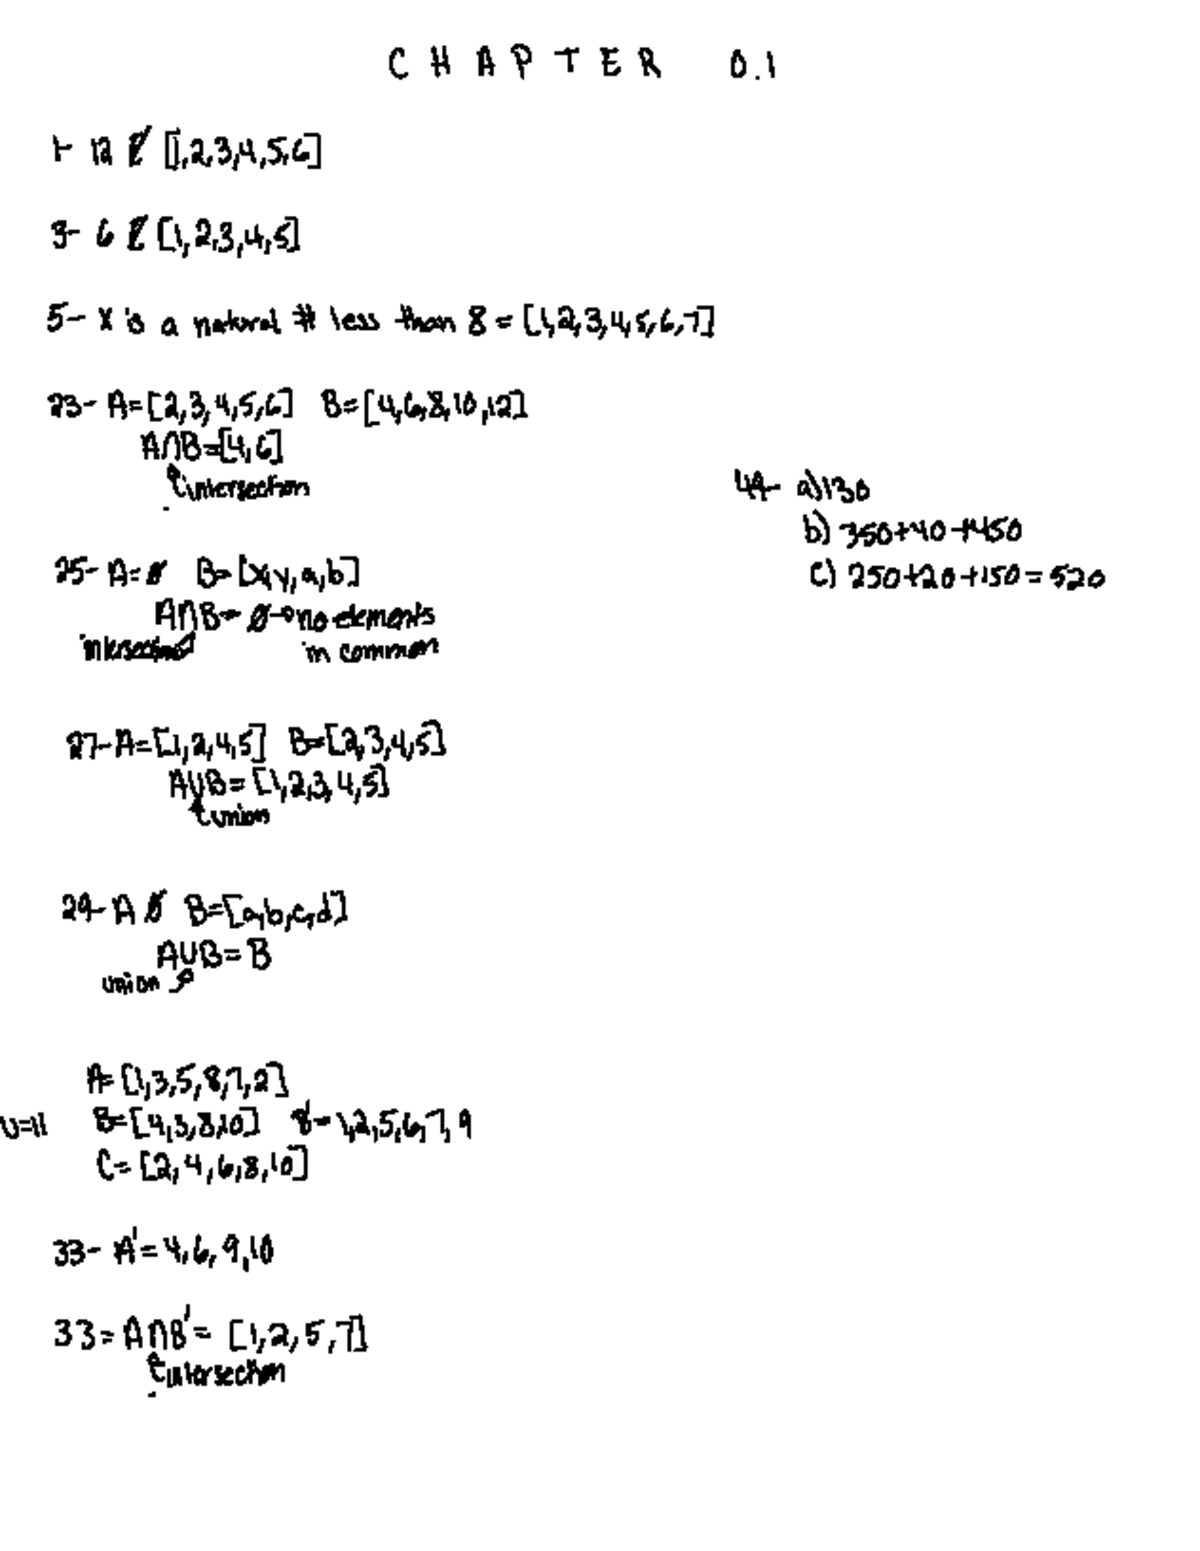 CHAPTER 0.1
1- 12 ∉ [1,2,3,4,5,6]
3- 6 ∉ [1,2,3,4,5]
5- x is a natural # less than 8 = [1,2,3,4,5,6,7]
23- A=[2,3,4,5,6] B=[4,6,8,10,12]
A∩B=[4,6]
intersection
25- A=∅ B=[x,y,a,b]
A∩B= ∅→no elements
intersection in common
27- A=[1,2,4,5] B=[2,3,4,5]
A∪B=[1,2,3,4,5]
union
29- A ∅ B=[a,b,c,d]
A∪B=B
union
A=[1,3,5,8,7,2]
U=11 B=[4,3,8,10] B'=1,2,5,6,7,9
C=[2,4,6,8,10]
33- A'=4,6,9,10
33= A∩B'= [1,2,5,7]
intersection
49- a)130
b) 350+40+450
c) 250+20+150=520